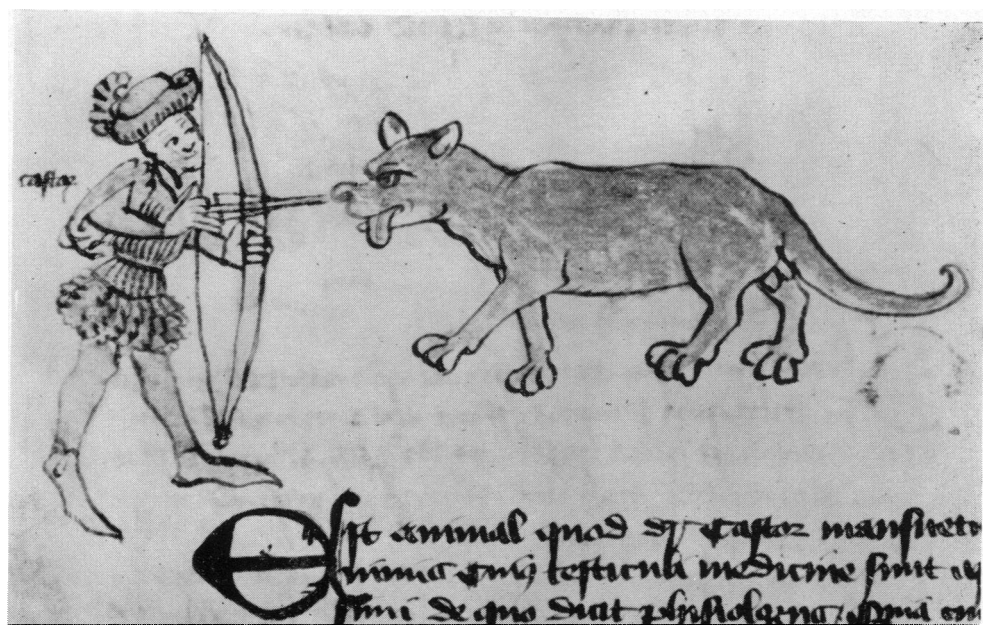 castor
Est animal quod dr castor mansuetu
nimis cuius testiculi medicine sunt
simi de quo dicit phisiologus quia